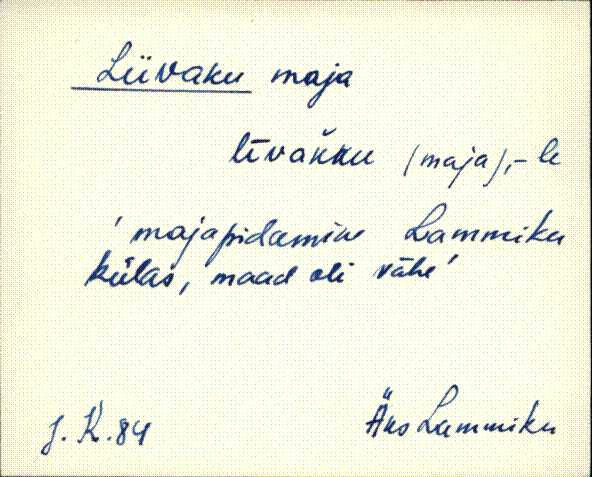 Liivaku maja
līvak̆ku (maja), -le
'majapidamine Lammiku
külas, maad oli vähe'
J. K. 84
Äks Lammiku